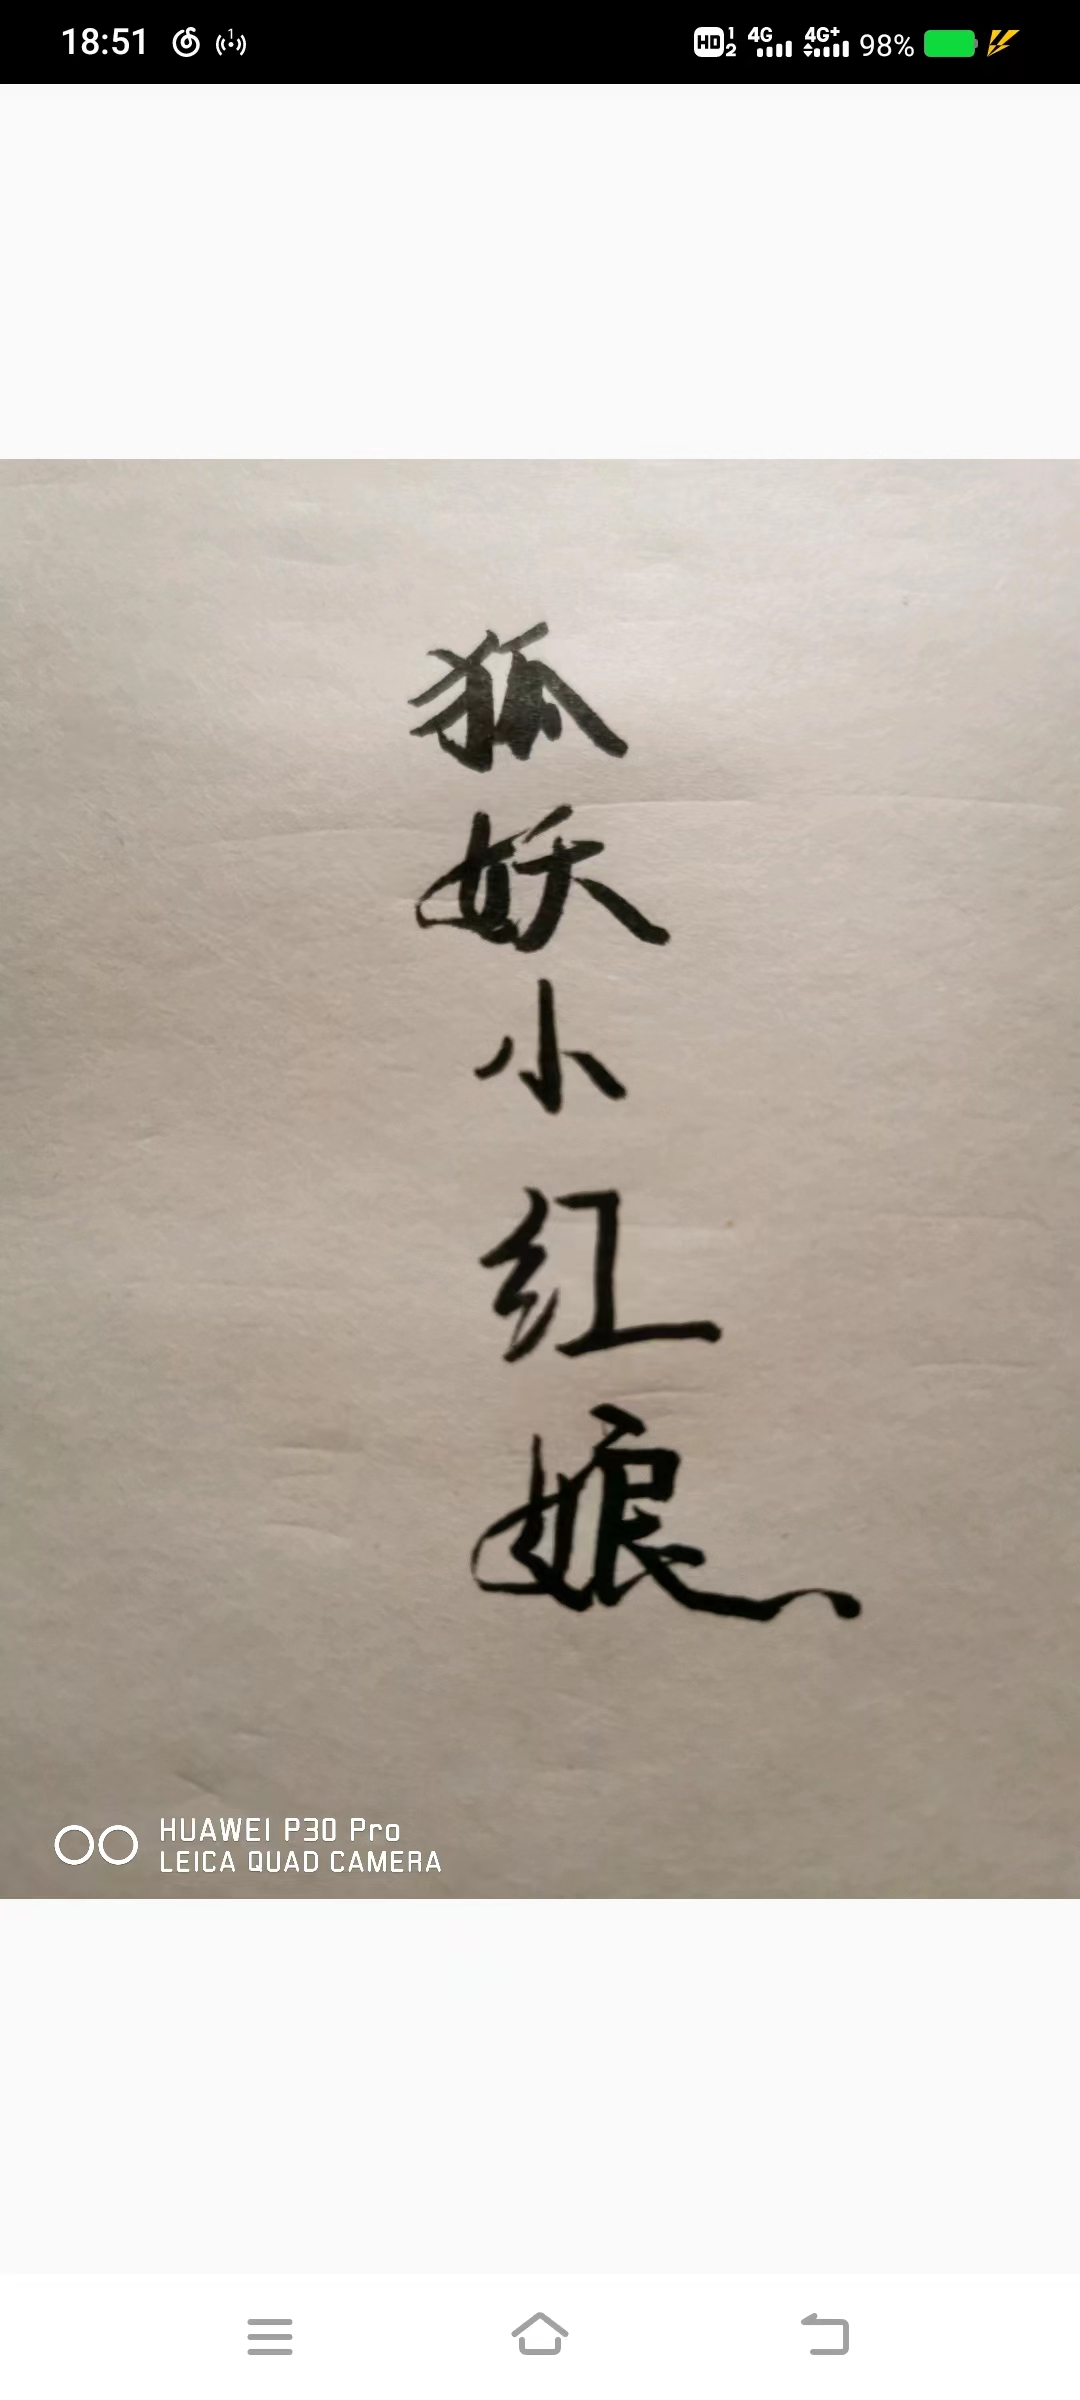 18:51
HD 1 2 4G 4G+ 98%
狐妖小红娘
HUAWEI P30 Pro
LEICA QUAD CAMERA